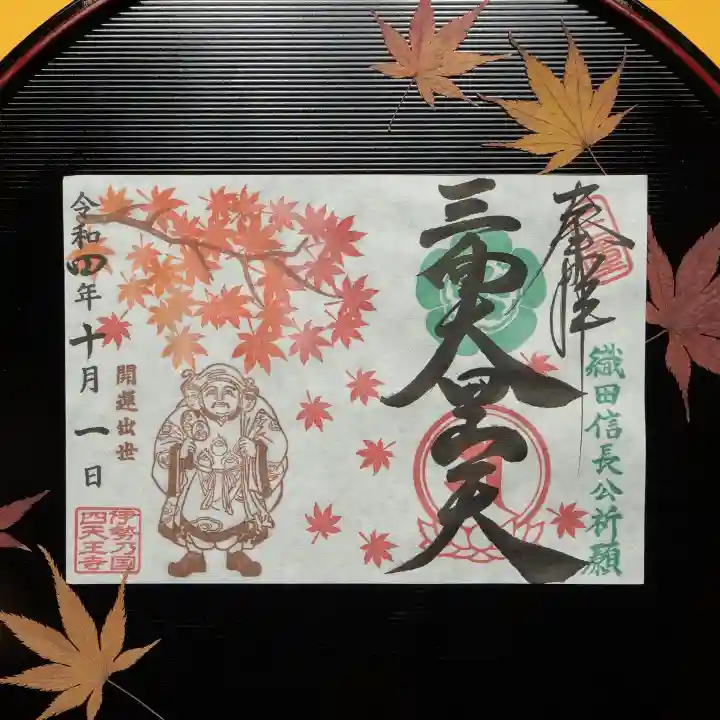 奉拝
織田信長公祈願
三面大黒天
開運出世
令和四年十月一日
伊勢乃国
四天王寺